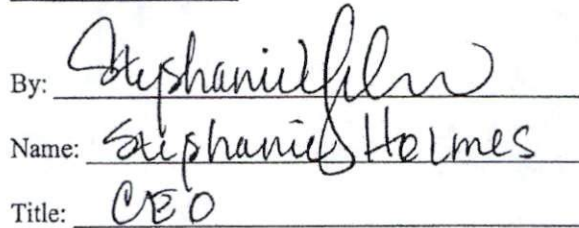 By: Stephanie Holmes
Name: Stephanie Holmes
Title: CEO